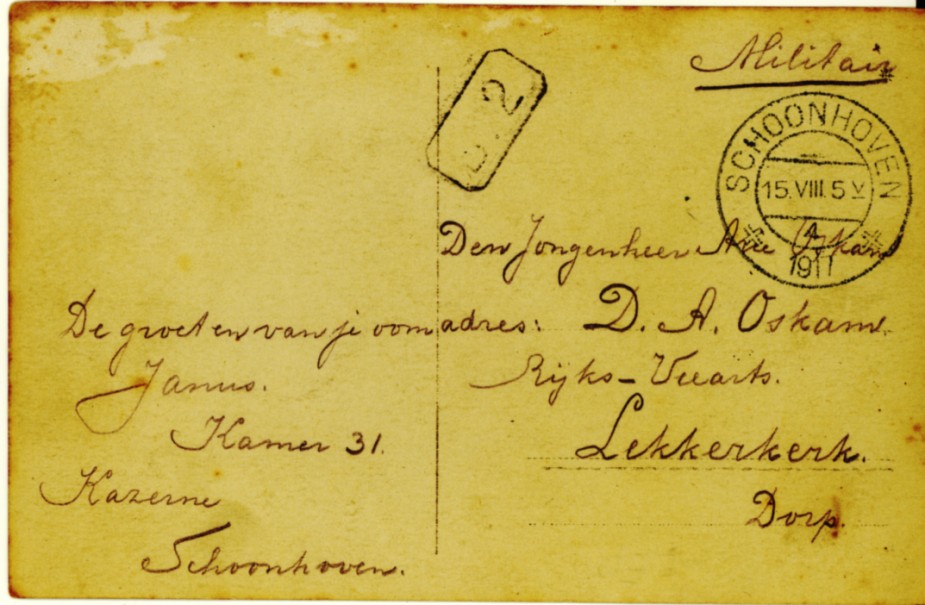 Militair
2
SCHOONHOVEN
15.VIII.5 V
A
1917
Den Jongenheer Arie Oskam
adres: D. A. Oskam.
Rijks-Veearts.
Lekkerkerk.
Dorp.
De groeten van je oom
Janus.
Kamer 31.
Kazerne
Schoonhoven.